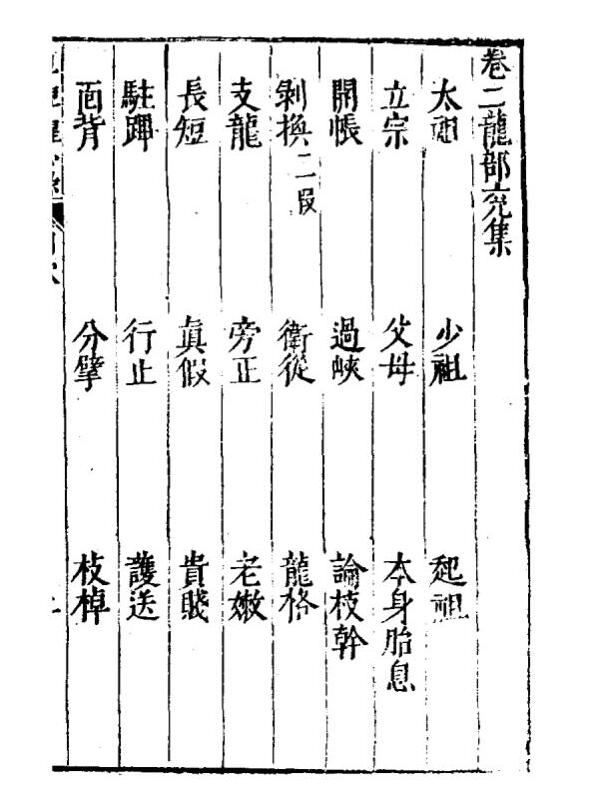 卷二龍部亢集
太祖 少祖 起祖
立宗 父母 本身胎息
開帳 過峽 論枝幹
剝換二段 衛從 龍格
支龍 旁正 老嫩
長短 眞假 貴賤
駐蹕 行止 護送
面背 分擘 枝棹
目次